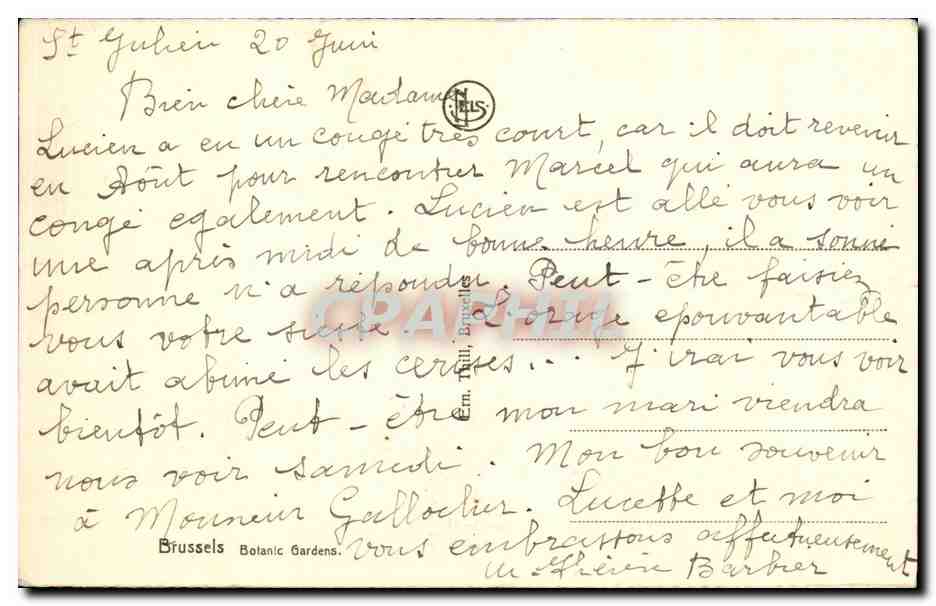 St Julien 20 Juin
Bien chère Madame
NELS
Lucien a eu un congé très court, car il doit revenir
en Août pour rencontrer Marcel qui aura un
congé egalement. Lucien est allé vous voir
une après midi de bonne heure, il a sonné
personne n'a répondu. Peut-être faisiez
vous votre sieste. L'orage epouvantable
avait abimé les cerises... J'irai vous voir
bientôt. Peut-être mon mari viendra
nous voir samedi. Mon bon souvenir
à Monsieur Gallocher. Lucette et moi
vous embrassons affectueusement
Barbier
Brussels Botanic Gardens.
Ern. Thill, Bruxelles
CPAPHIL